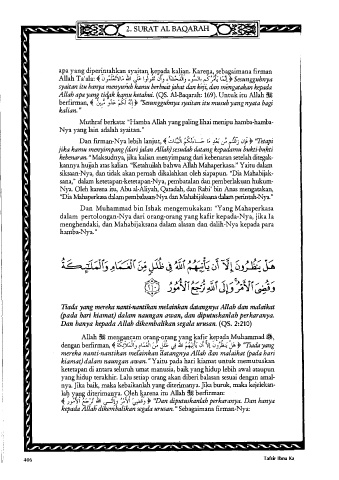 2. SURAT AL BAQARAH
apa yang diperintahkan syaitan kepada kalian. Karena, sebagaimana firman
Allah Ta'ala: ﴿ إِنَّمَا يَأْمُرُكُم بِالسُّوءِ وَالْفَحْشَاءِ وَأَن تَقُولُوا عَلَى اللَّهِ مَا لَا تَعْلَمُونَ ﴾ "Sesungguhnya
syaitan itu hanya menyuruh kamu berbuat jahat dan keji, dan mengatakan kepada
Allah apa yang tidak kamu ketahui. (QS. Al-Baqarah: 169). Untuk itu Allah ﷻ
berfirman, ﴿ إِنَّهُ لَكُمْ عَدُوٌّ مُّبِينٌ ﴾ "Sesungguhnya syaitan itu musuh yang nyata bagi
kalian."
Muthraf berkata: "Hamba Allah yang paling lihai menipu hamba-hamba-
Nya yang lain adalah syaitan."
Dan firman-Nya lebih lanjut, ﴿ فَإِن زَلَلْتُم مِّن بَعْدِ مَا جَاءَتْكُمُ الْبَيِّنَاتُ ﴾ "Tetapi
jika kamu menyimpang (dari jalan Allah) sesudah datang kepadamu bukti-bukti
kebenaran." Maksudnya, jika kalian menyimpang dari kebenaran setelah ditegak-
kannya hujjah atas kalian. "Ketahuilah bahwa Allah Mahaperkasa." Yaitu dalam
siksaan-Nya, dan tidak akan pernah dikalahkan oleh siapapun. "Dia Mahabijak-
sana," dalam ketetapan-ketetapan-Nya, pembatalan dan pemberlakuan hukum-
Nya. Oleh karena itu, Abu al-Aliyah, Qatadah, dan Rabi' bin Anas mengatakan,
"Dia Mahaperkasa dalam pembalasan-Nya dan Mahabijaksana dalam perintah-Nya."
Dan Muhammad bin Ishak mengemukakan: "Yang Mahaperkasa
dalam pertolongan-Nya dari orang-orang yang kafir kepada-Nya, jika Ia
menghendaki, dan Mahabijaksana dalam alasan dan dalih-Nya kepada para
hamba-Nya."
هَلْ يَنظُرُونَ إِلَّا أَن يَأْتِيَهُمُ اللَّهُ فِي ظُلَلٍ مِّنَ الْغَمَامِ وَالْمَلَٰئِكَةُ
وَقُضِيَ الْأَمْرُ وَإِلَى اللَّهِ تُرْجَعُ الْأُمُورُ ﴿٢١٠﴾
Tiada yang mereka nanti-nantikan melainkan datangnya Allah dan malaikat
(pada hari kiamat) dalam naungan awan, dan diputuskanlah perkaranya.
Dan hanya kepada Allah dikembalikan segala urusan. (QS. 2:210)
Allah ﷻ mengancam orang-orang yang kafir kepada Muhammad ﷺ,
dengan berfirman, ﴿ هَلْ يَنظُرُونَ إِلَّا أَن يَأْتِيَهُمُ اللَّهُ فِي ظُلَلٍ مِّنَ الْغَمَامِ وَالْمَلَائِكَةُ ﴾ "Tiada yang
mereka nanti-nantikan melainkan datangnya Allah dan malaikat (pada hari
kiamat) dalam naungan awan." Yaitu pada hari kiamat untuk memutuskan
ketetapan di antara seluruh umat manusia, baik yang hidup lebih awal ataupun
yang hidup terakhir. Lalu setiap orang akan diberi balasan sesuai dengan amal-
nya. Jika baik, maka kebaikanlah yang diterimanya. Jika buruk, maka kejelekan-
lah yang diterimanya. Oleh karena itu Allah ﷻ berfirman:
﴿ وَقُضِيَ الْأَمْرُ وَإِلَى اللَّهِ تُرْجَعُ الْأُمُورُ ﴾ "Dan diputuskanlah perkaranya. Dan hanya
kepada Allah dikembalikan segala urusan." Sebagaimana firman-Nya:
406
Tafsir Ibnu Ka